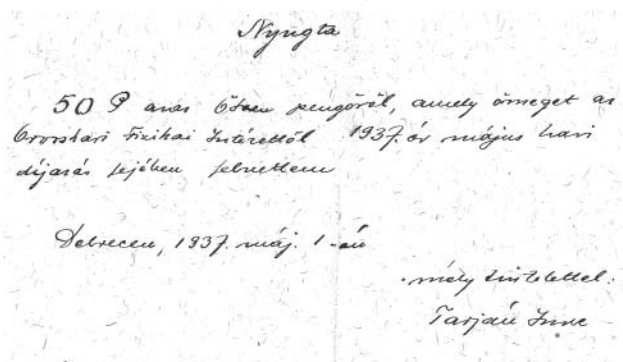 Nyugta
50 P azaz Ötven pengőről, amely összeget az
Orvoskari Fizikai Intézettől 1937. év május havi
díjazás fejében felvettem
Debrecen, 1937. máj. 1-én
mély tisztelettel:
Tarján Imre